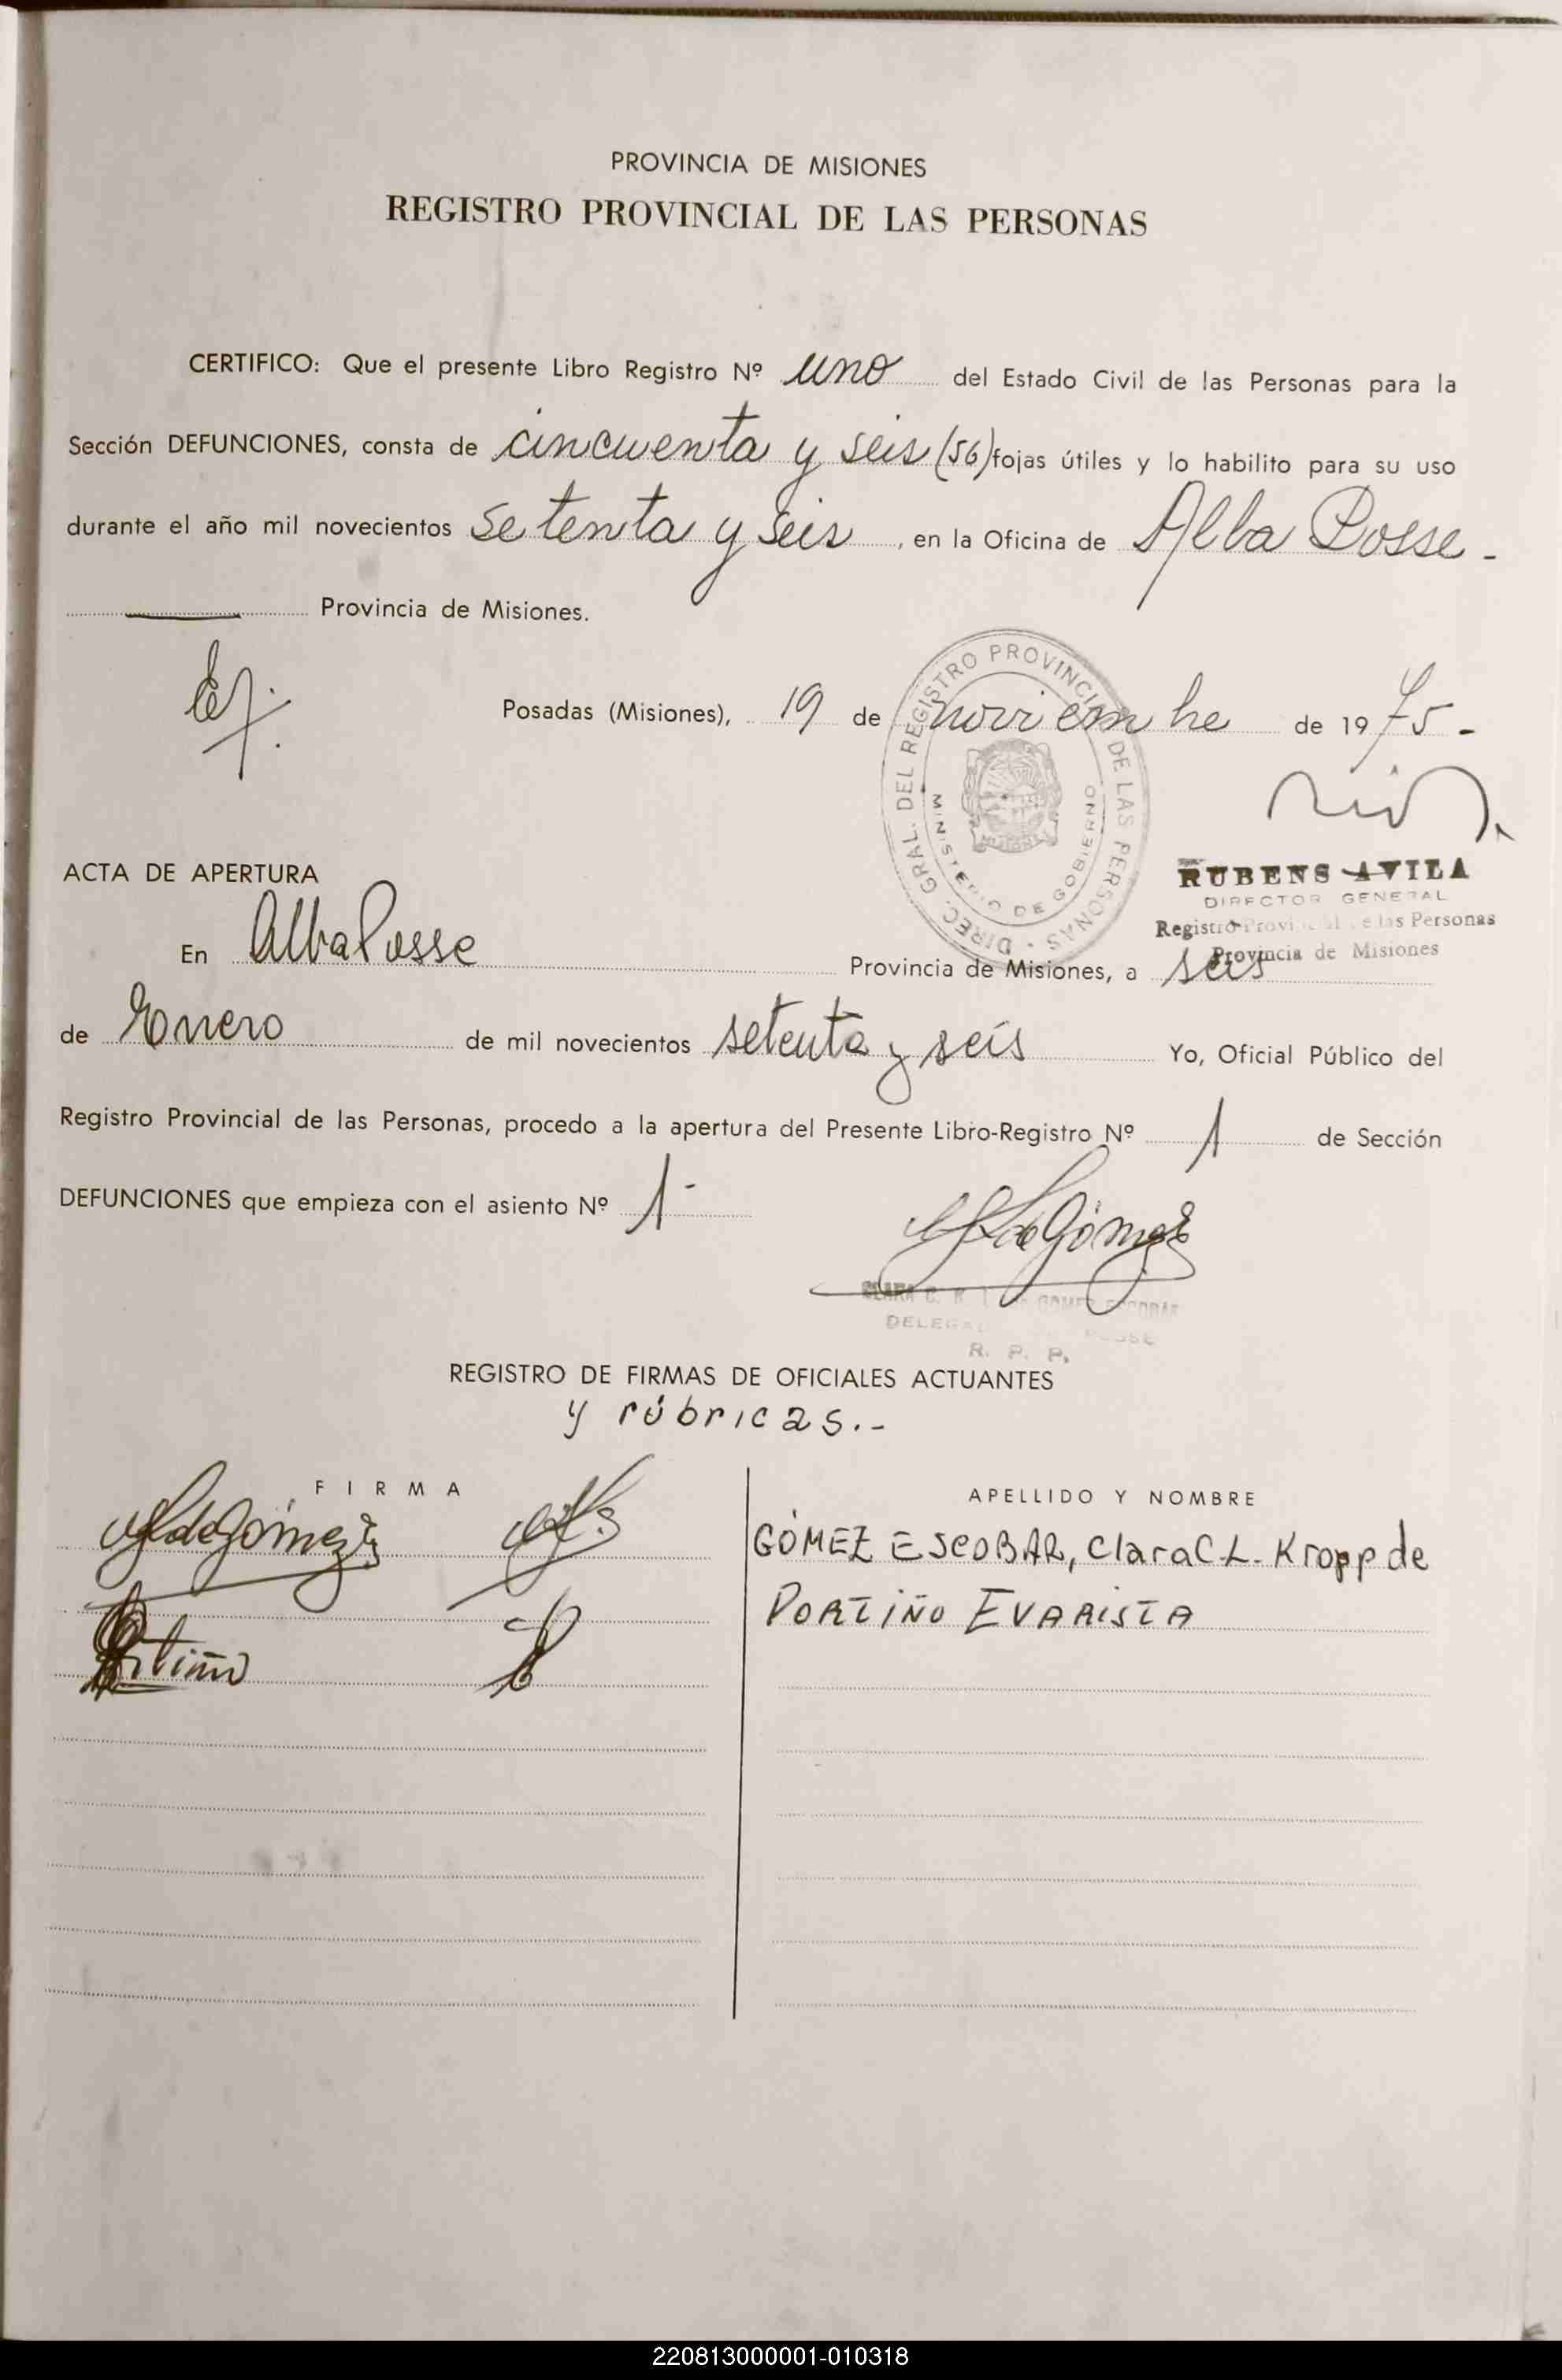 PROVINCIA DE MISIONES
REGISTRO PROVINCIAL DE LAS PERSONAS
CERTIFICO: Que el presente Libro Registro Nº uno del Estado Civil de las Personas para la
Sección DEFUNCIONES, consta de cincuenta y seis (56) fojas útiles y lo habilito para su uso
durante el año mil novecientos setenta y seis, en la Oficina de Alba Posse -
Provincia de Misiones.
Posadas (Misiones), 19 de noviembre de 1975-
DIREC. GRAL. DEL REGISTRO PROVINCIAL DE LAS PERSONAS
MINISTERIO DE GOBIERNO
RUBENS AVILA
DIRECTOR GENERAL
Registro Provincial de las Personas
Provincia de Misiones
ACTA DE APERTURA
En Alba Posse Provincia de Misiones, a seis
de Enero de mil novecientos setenta y seis Yo, Oficial Público del
Registro Provincial de las Personas, procedo a la apertura del Presente Libro-Registro Nº 1 de Sección
DEFUNCIONES que empieza con el asiento Nº 1-
CLARA C. GOMEZ ESCOBAR
POSSE
R. P. P.
REGISTRO DE FIRMAS DE OFICIALES ACTUANTES
y rúbricas.-
FIRMA
APELLIDO Y NOMBRE
GÓMEZ ESCOBAR, Clara C L. Kropp de
PORTIÑO EVARISTA
220813000001-010318